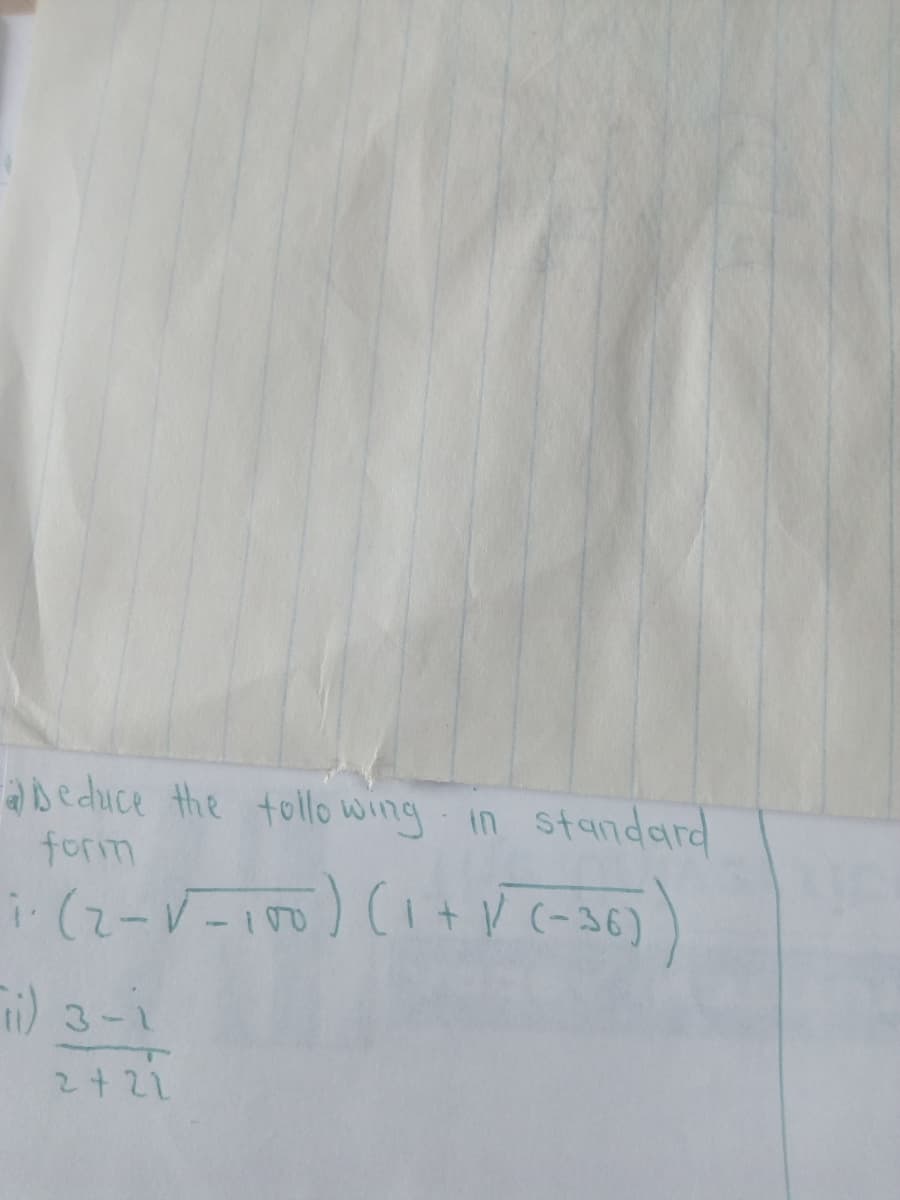 a) Deduce the following in standard
form
i. (2-√-100) (1+√(-36))
ii) 3-i
2+2i